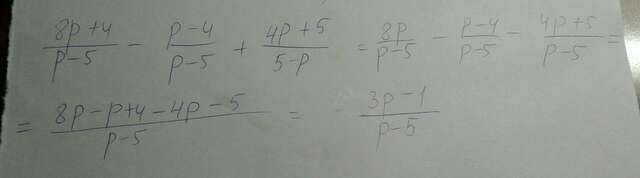 (8p+4)/(p-5) - (p-4)/(p-5) + (4p+5)/(5-p) = 8p/(p-5) - (p-4)/(p-5) - (4p+5)/(p-5) =
= (8p-p+4-4p-5)/(p-5) = (3p-1)/(p-5)